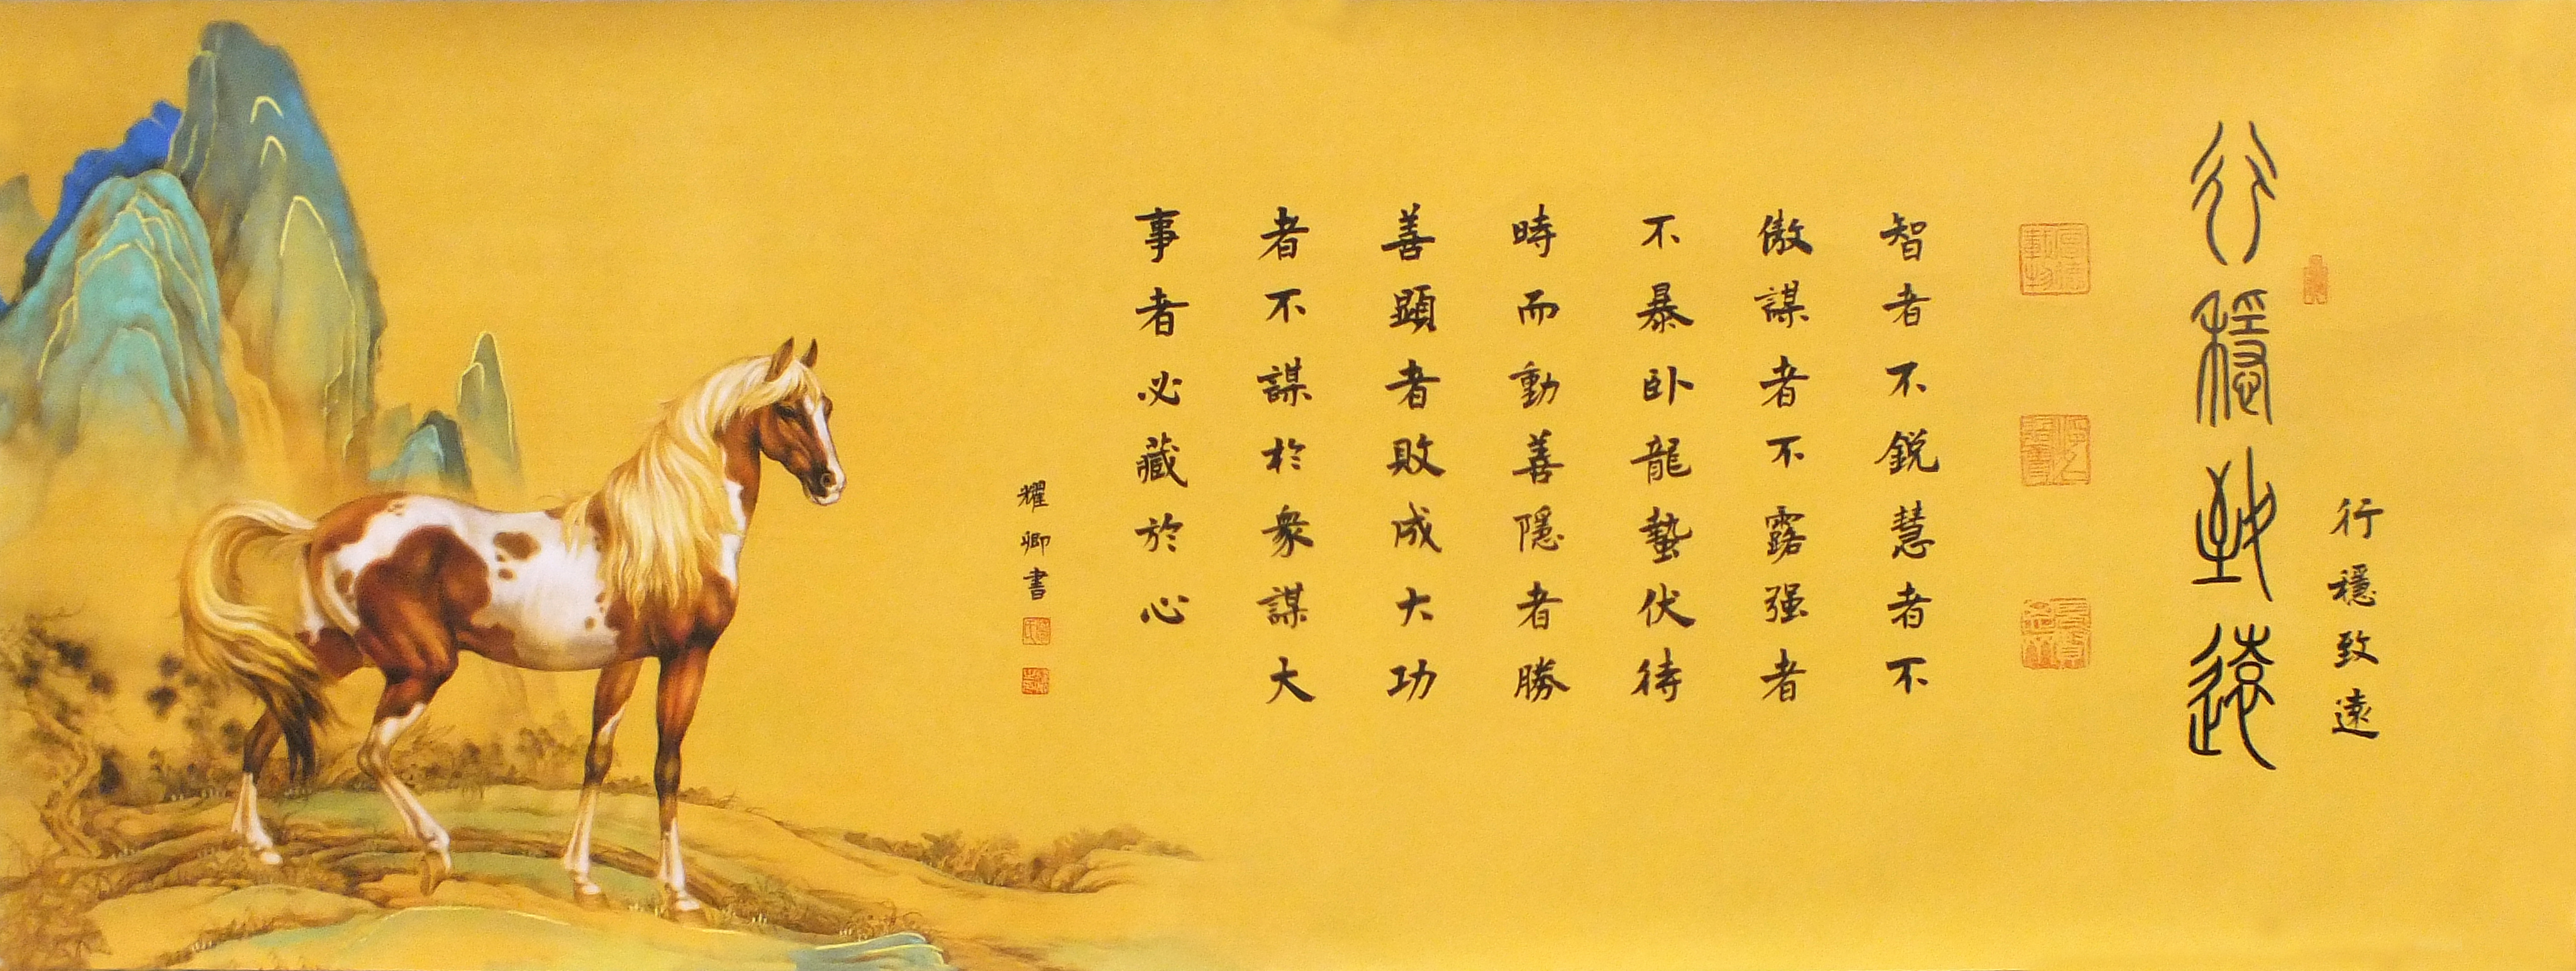 行穩致遠
行穩致遠
厚德載物
智者不銳慧者不
傲謀者不露强者
不暴卧龍蟄伏待
時而動善隱者勝
善顯者敗成大功
者不謀於衆謀大
事者必藏於心
耀卿書